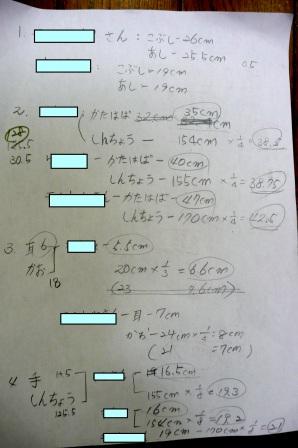 1. さん : こぶし-26cm
あし - 25.5cm
: こぶし-19cm 0.5
あし - 19cm
2. かたはば 32cm 35cm
しんちょう - 154cm × 1/4 = 38.5
30.5 - かたはば - 40cm
しんちょう - 155cm × 1/4 = 38.75
- かたはば - 47cm
しんちょう - 170cm × 1/4 = 42.5
3. 耳 6 - 5.5cm
かお 18 20cm × 1/3 = 6.6cm
(23 7.6cm)
- 耳 - 7cm
かお - 24cm × 1/3 = 8cm
(21 = 7cm)
4. 手 16.5cm
しんちょう 155cm × 1/8 = 19.3
125.5 16cm
154cm × 1/8 = 19.2
19cm - 170cm × 1/8 = 21